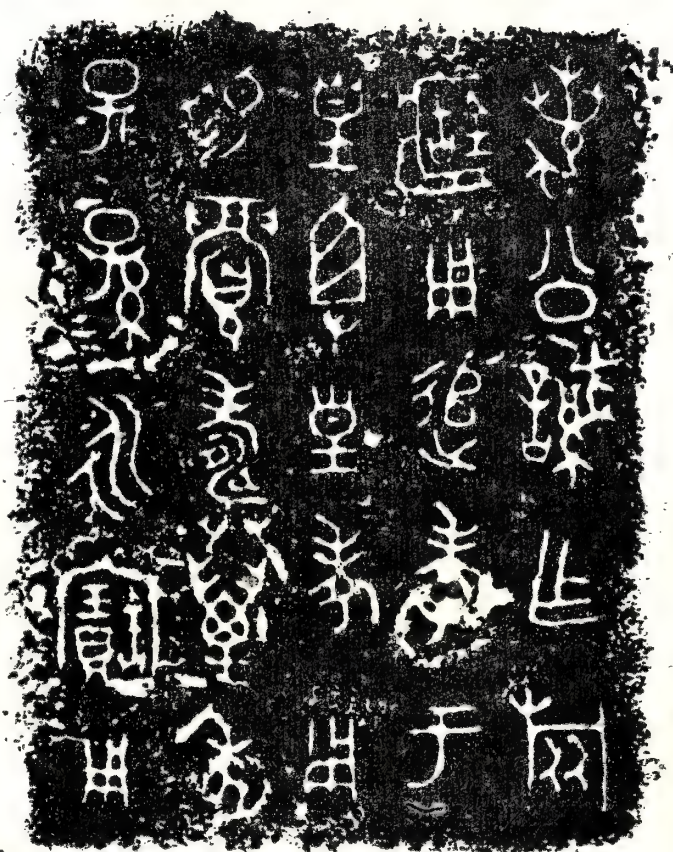 蠚公諴乍旅
𠤳用追孝于
皇且皇考用
易眉壽萬年
子孫永寶用